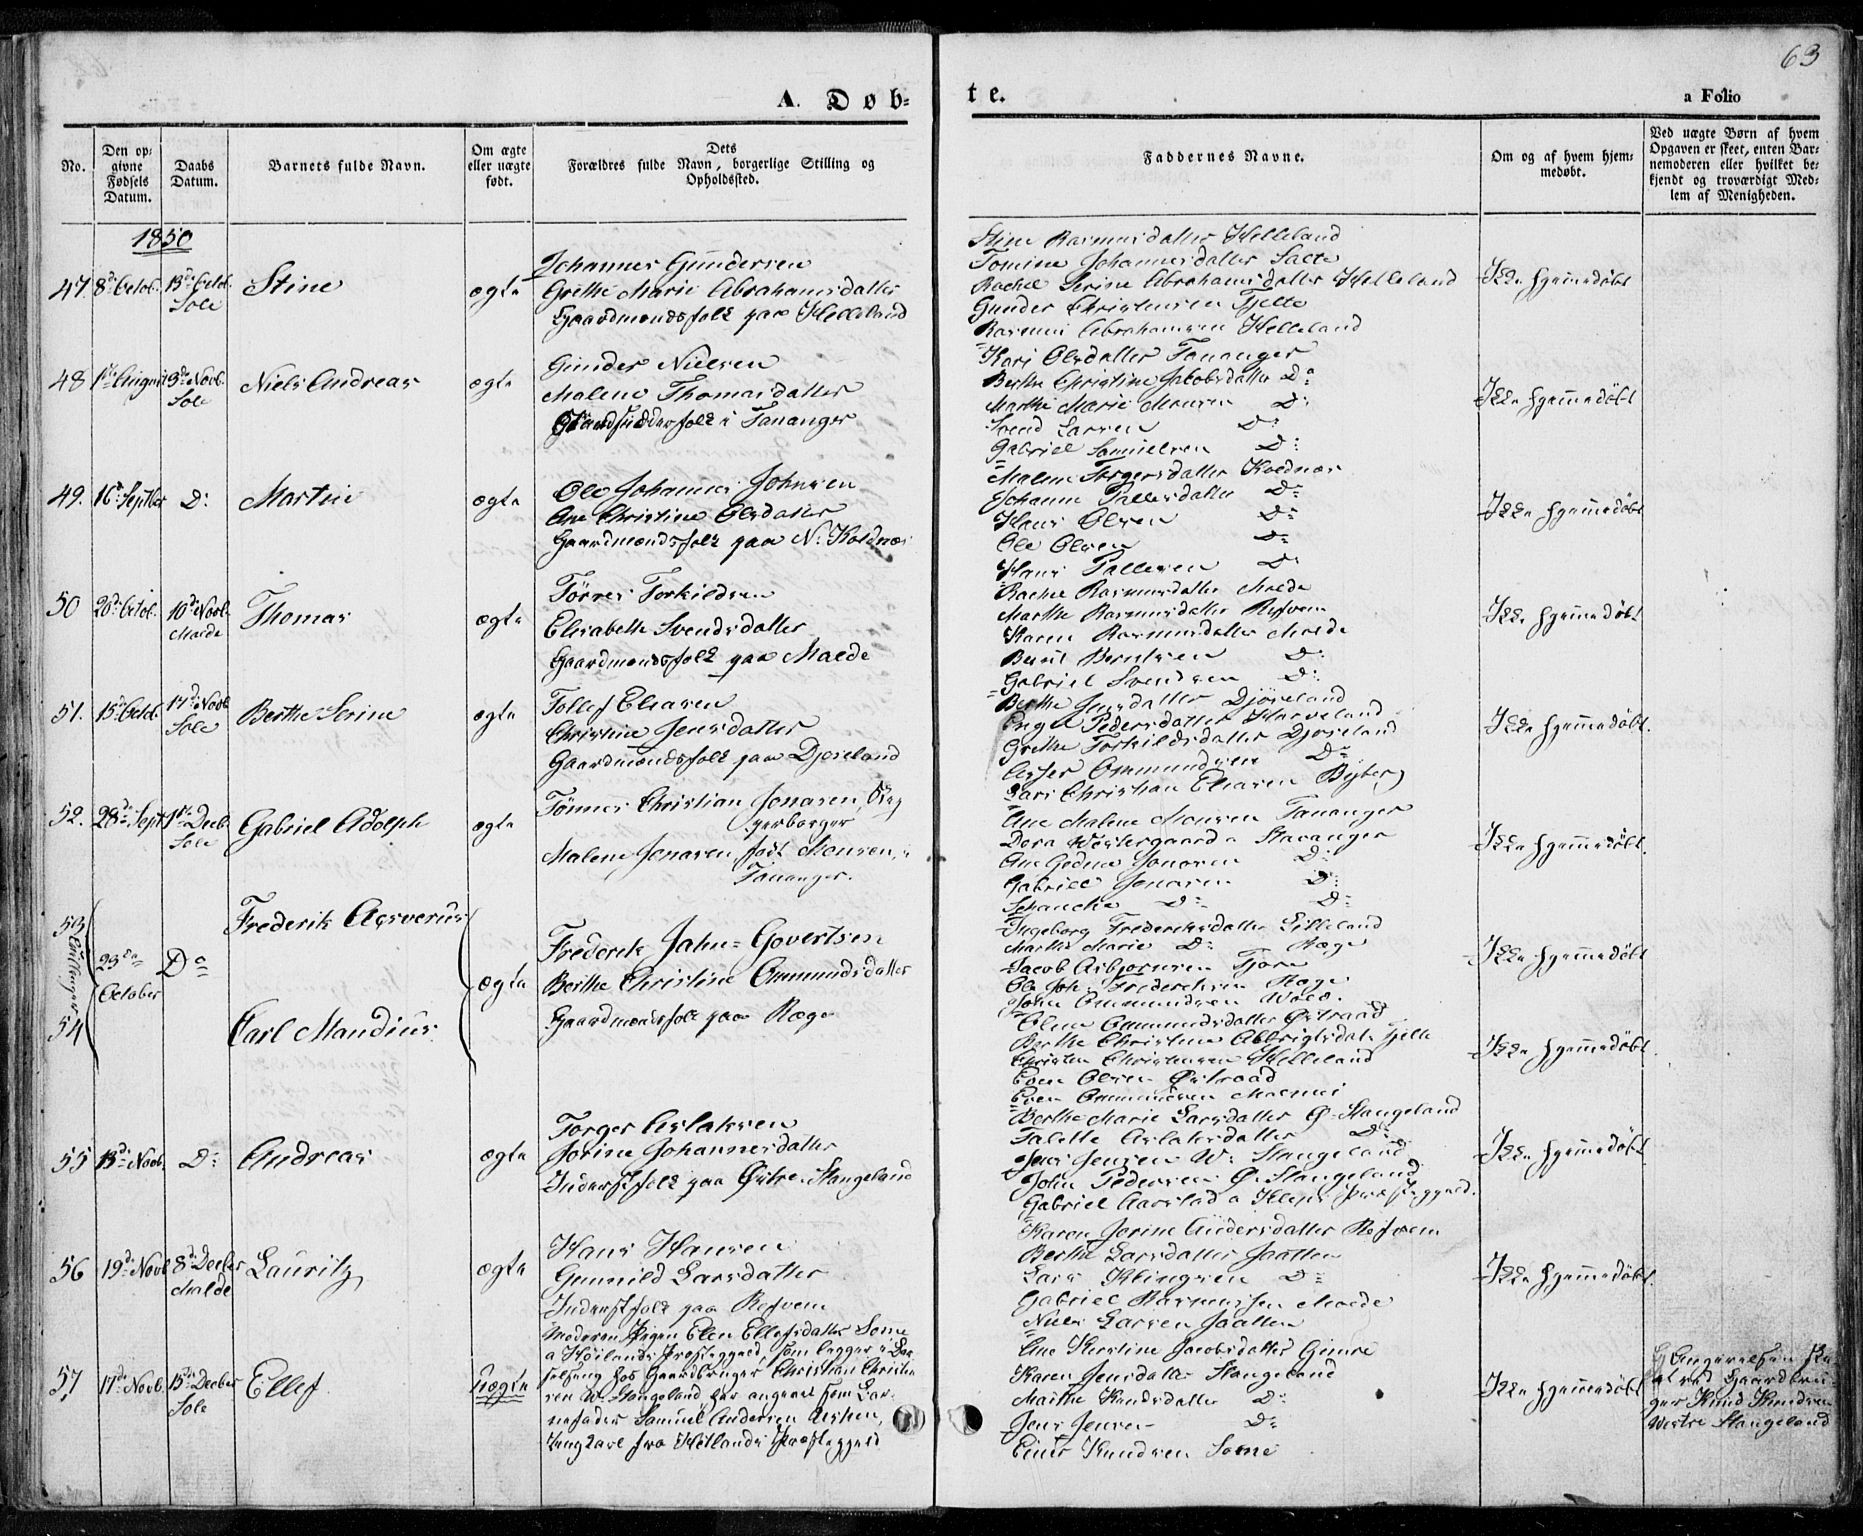 63
A. Døb-
te.
a Folio
No.
Den op-
givne
Fødsels
Datum.
Daabs
Datum.
Barnets fulde Navn.
Om ægte
eller uægte
født.
Dets
Forældres fulde Navn, borgerlige Stilling og
Opholdssted.
Faddernes Navne.
Om og af hvem hjem-
medøbt.
Ved uægte Børn af hvem
Opgaven er skeet, enten Bar-
nemoderen eller hvilket be-
kjendt og troværdigt Med-
lem af Menigheden.
1850
47. 8de Octob. 13de Octob.
Sole
Stine
ægte
Johannes Gundersen
Grethe Marie Abrahamsdatter
Gaardmandsfolk paa Helleland
Stine Rasmusdatter Helleland
Tomine Johannesdatter Salte
Rachel Serine Abrahamsdatter Helleland
Gunder Christensen Tjelle
Rasmus Abrahamsen Helleland
Ikke hjemmedøbt
48 1ste August 3de Novb.
Sole
Niels Andreas
ægte
Gunder Nielsen
Malene Thomasdatter
i Tananger
Kari Olsdatter Tananger
Berthe Christine Jakobsdatter Do
Marthe Marie Monsen D:
Svend Larsen D:
Gabriel Samuelsen D:
Ikke hjemmedøbt
49. 16de Septber D:
Martin
ægte
Ole Johannes Johnsen
Ane Christine Olsdatter
Gaardmandsfolk paa N. Koldnæs
Malene Torgersdatter Koldnæs
Johanne Pallesdatter D:
Hans Olsen D:
Ole Olsen D:
Hans Pallesen D:
Ikke hjemmedøbt
50 20de Octob. 10de Novb.
Malde
Thomas
ægte
Tørres Torkildsen
Elisabeth Svendsdatter
Gaardmandsfolk paa Malde
Rachel Rasmusdatter Malde
Marthe Rasmusdatter Refvem
Karen Rasmusdatter Malde
Berntsen D:
Gabriel Svendsen D:
Ikke hjemmedøbt
51. 15de Octob. 17de Novb.
Sole
Berthe Serine
ægte
Tollef Eliasen
Christine Jensdatter
Gaardmandsfolk paa Djøseland
Berthe Jensdatter Djøseland
Pedersdatter Harveland
Grethe Torkildsdatter Djøseland
Asser Ommundsen D:
Lars Christian Eliasen Byberg
Ikke hjemmedøbt.
52. 28de Septb. 1ste Decbr.
Sole
Gabriel Adolph
ægte
Tønnes Christian Jonasen, Stav-
gerborger
Malene Jonasen født Monsen,
Tananger.
Ane Malene Monsen Tananger
Dora Westergaard a Stavanger
Jonasen D:
Gabriel Jonasen D:
D: D:
Ikke hjemmedøbt.
53
Tvillinger
54
23de
October
Do
Frederik Asverus
Carl Mandius
ægte
Frederik Jahn Govertsen
Berthe Christine Ommundsdatter
Gaardmandsfolk paa Ræge
Ingeborg Frederiksdatter Lilleland
Marthe Marie D: Ræge
Jacob Asbjørnsen Tjora
Ole Joh. Frederiksen Ræge
John Ommundsen Wold.
Ikke hjemmedøbt
Olene Ommundsdatter Østraad
Berthe Christine Tjelle
Christen Christensen Helleland
Even Olsen Østraad
Even Ommundsen
Ikke hjemmedøbt.
55 13de Novb. D:
Andreas
ægte
Torger Aslaksen
Jorine Johannesdatter
Inderstfolk paa Østre Stangeland
Berthe Marie Larsdatter Ø. Stangeland
Talette Aslaksdatter D:
Jens Jensen W: Stangeland
John Pedersen Ø. Stangeland
Gabriel Aarstad a Klepps Præstegjeld.
Ikke hjemmedøbt.
56 19de Novb. 8de Decber
Malde
Lauritz
ægte
Hans Hansen
Gunnild Larsdatter
Inderstfolk paa Refvem
Karen Jorine Andersdatter Refvem
Berthe Larsdatter Jaatten
Lars D:
Gabriel Rasmussen Malde
Niels Larsen Jaatten
Ikke hjemmedøbt.
57. 17de Novb. 15de Decber
Sole
Ellef
Uægte
Moderen Pigen Elen Ellefsdatter Some
a Høilands Præstegjeld, som ligger i Bar-
selseng hos Gaardbruger Christian Christen-
sen W. Stangeland har angivet som Bar-
nefader Samuel Andersen
Ungkarl fra Høilands Præstegjeld
Ane Kirstine Jacobsdatter Gimre
Karen Jensdatter Stangeland
Marthe Knudsdatter D:
Jens Jensen D:
Einer Knudsen Some
Ikke hjemmedøbt
Angivelsen ske-
et ved Gaardbru-
ger Knud Knudsen
Westre Stangeland